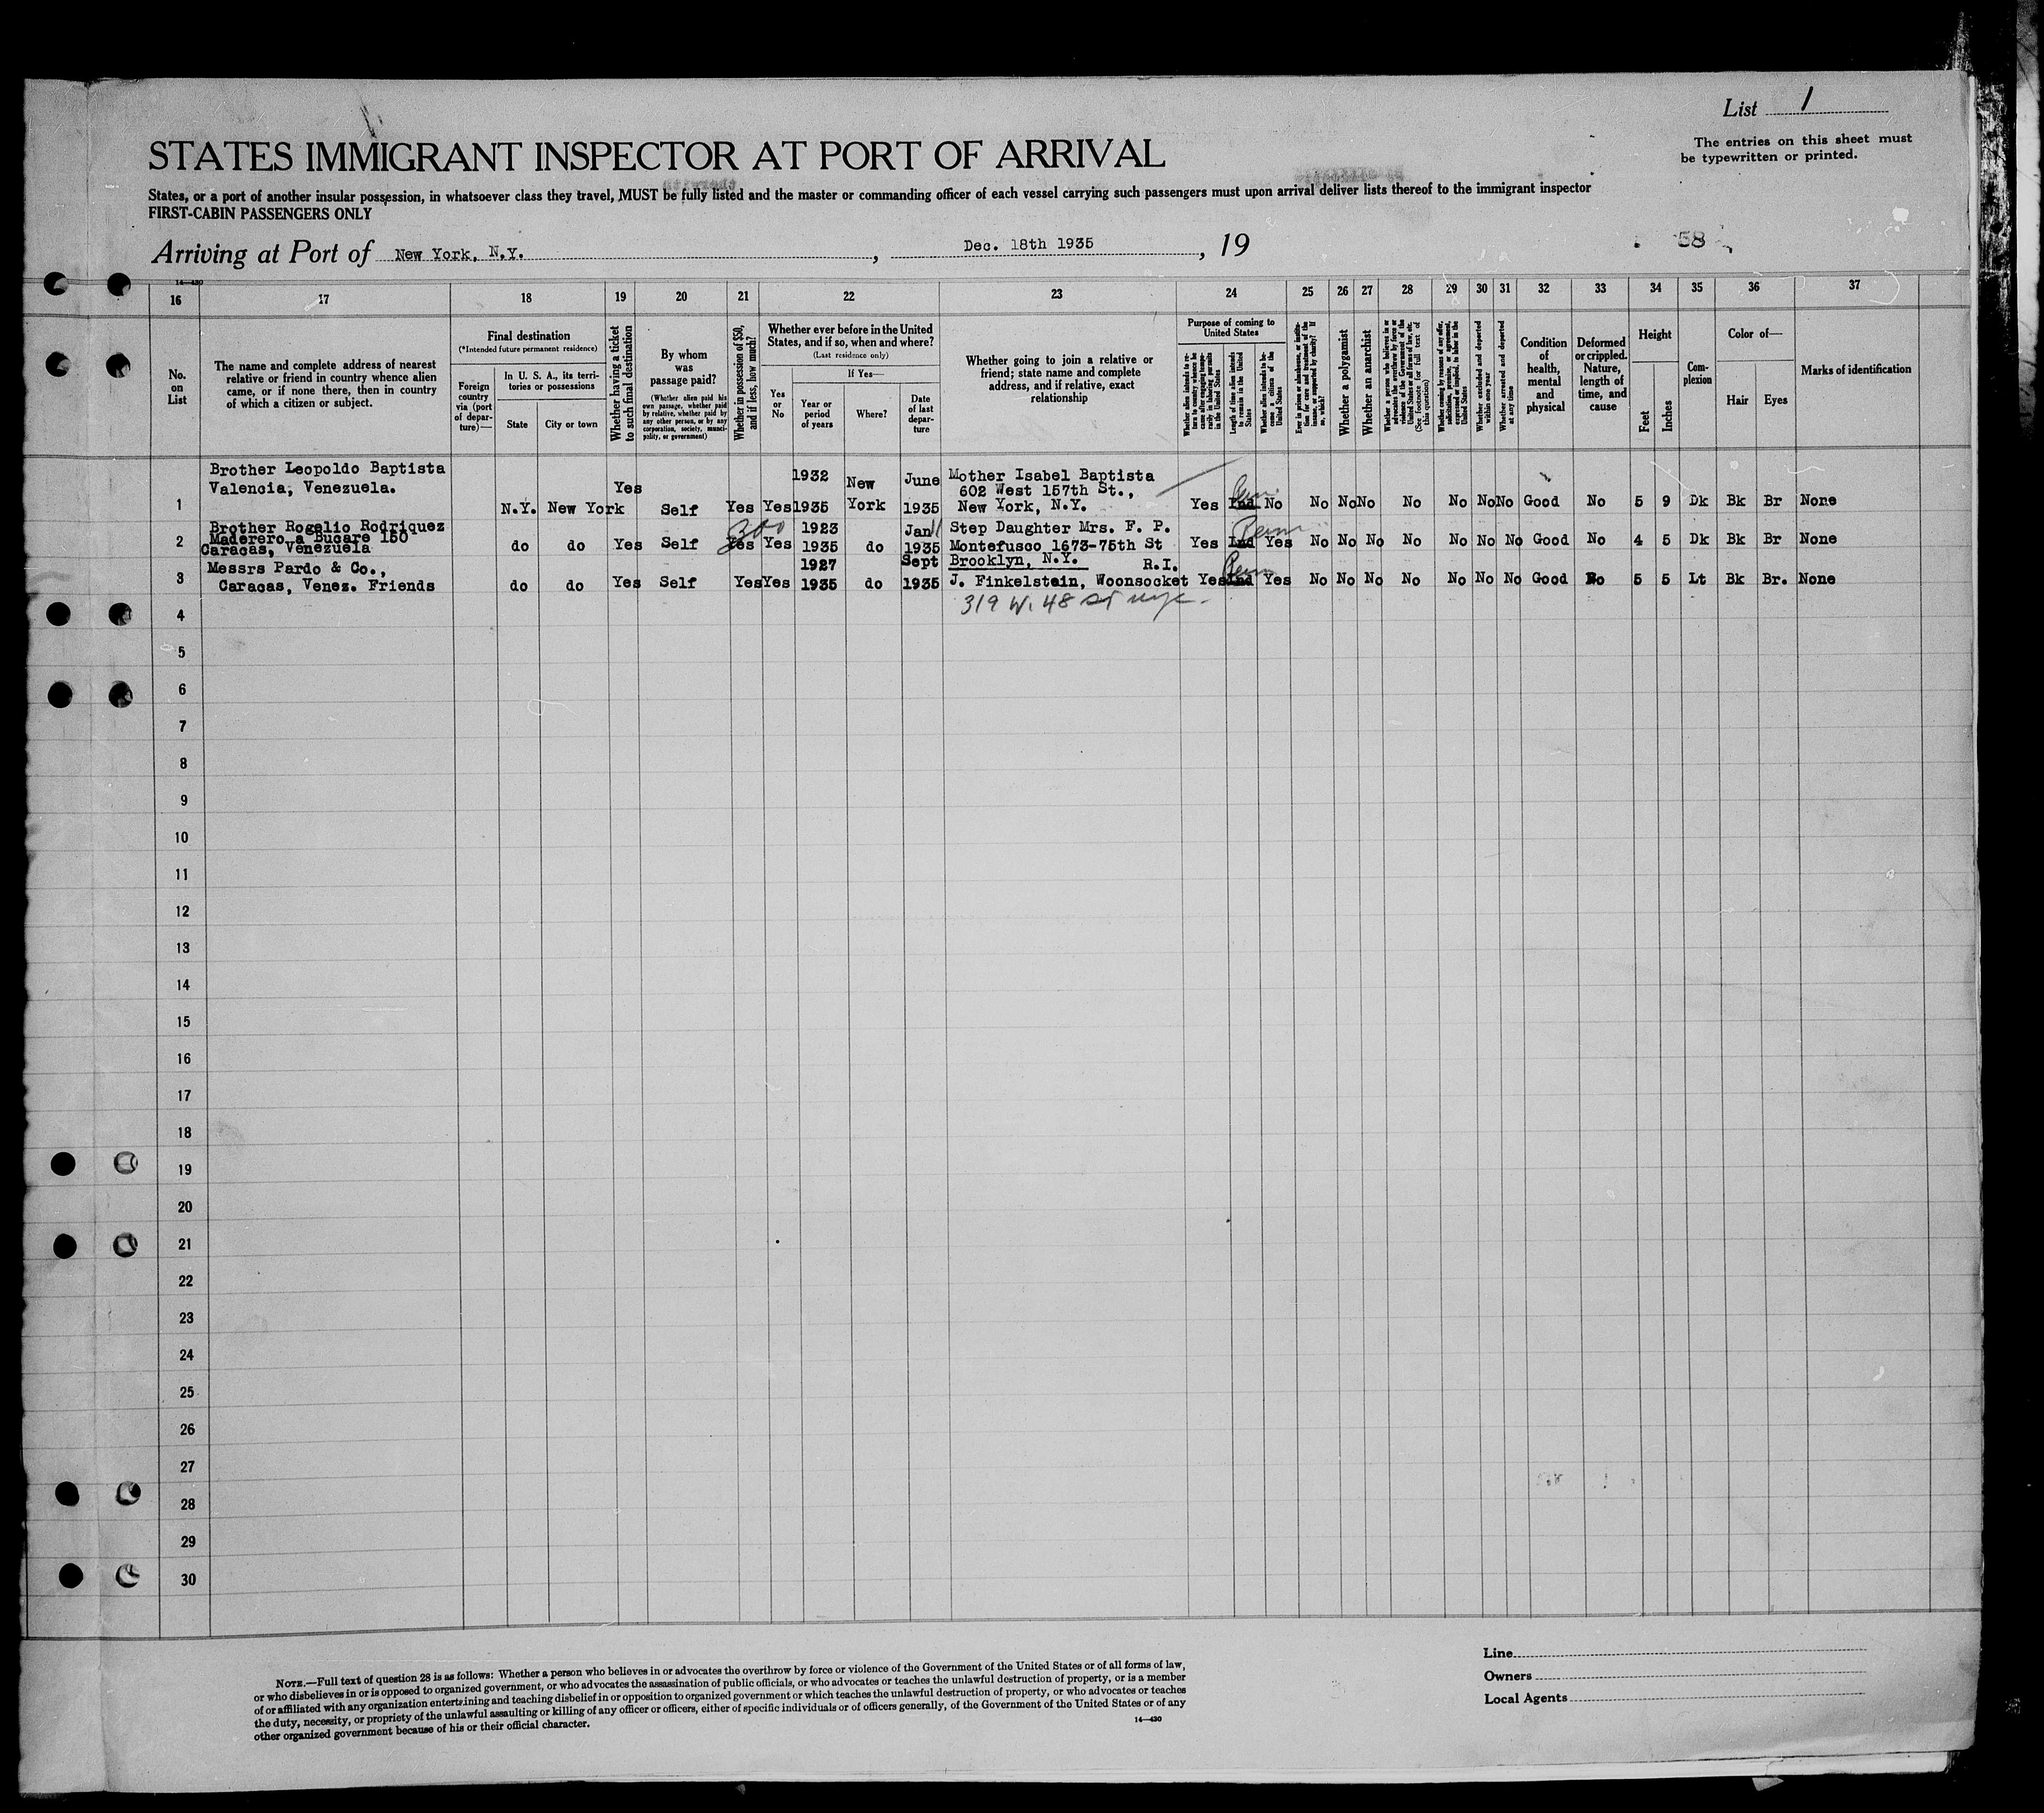 List 1
The entries on this sheet must
be typewritten or printed.
STATES IMMIGRANT INSPECTOR AT PORT OF ARRIVAL
States, or a port of another insular possession, in whatsoever class they travel, MUST be fully listed and the master or commanding officer of each vessel carrying such passengers must upon arrival deliver lists thereof to the immigrant inspector
FIRST-CABIN PASSENGERS ONLY
Arriving at Port of New York, N.Y. , Dec. 18th 1935 , 19
58
14—430
16 17 18 19 20 21 22 23 24 25 26 27 28 29 30 31 32 33 34 35 36 37
No.
on
List
The name and complete address of nearest
relative or friend in country whence alien
came, or if none there, then in country
of which a citizen or subject.
Final destination
(*Intended future permanent residence)
Foreign
country
via (port
of depar-
ture)—
In U. S. A., its terri-
tories or possessions
State
City or town
Whether having a ticket
to such final destination
By whom
was
passage paid?
(Whether alien paid his
own passage, whether paid
by relative, whether paid by
any other person, or by any
corporation, society, munici-
pality, or government)
Whether in possession of $50,
and if less, how much?
Whether ever before in the United
States, and if so, when and where?
(Last residence only)
Yes
or
No
If Yes—
Year or
period
of years
Where?
Date
of last
depar-
ture
Whether going to join a relative or
friend; state name and complete
address, and if relative, exact
relationship
Purpose of coming to
United States
Whether alien intends to re-
turn to country whence he
came after engaging tempo-
rarily in laboring pursuits
in the United States
Length of time alien intends
to remain in the United
States
Whether alien intends to be-
come a citizen of the
United States
Ever in prison or almshouse, or institu-
tion for care and treatment of the
insane, or supported by charity? If
so, which?
Whether a polygamist
Whether an anarchist
Whether a person who believes in or
advocates the overthrow by force or
violence of the Government of the
United States or all forms of law, etc.
(See footnote for full text of
this question)
Whether coming by reasons of any offer,
solicitation, promise, or agreement,
expressed or implied, to labor in the
United States
Whether excluded and deported
within one year
Whether arrested and deported
at any time
Condition
of
health,
mental
and
physical
Deformed
or crippled.
Nature,
length of
time, and
cause
Height
Feet
Inches
Com-
plexion
Color of—
Hair
Eyes
Marks of identification
Brother Leopoldo Baptista 1932 June Mother Isabel Baptista
Valencia, Venezuela. Yes New 602 West 157th St.,
1 N.Y. New York Self Yes Yes 1935 York 1935 New York, N.Y. Yes Ind No No No No No No No No Good No 5 9 Dk Bk Br None
Brother Rogelio Rodriquez 300 1923 Jan 11 Step Daughter Mrs. F. P. Perm
Maderero a Bucare 150
2 Caracas, Venezuela do do Yes Self Yes Yes 1935 do 1935 Montefusco 1673-75th St Yes Ind Yes No No No No No No No Good No 4 5 Dk Bk Br None
Messrs Pardo & Co., 1927 Sept Brooklyn, N.Y. R.I. Perm
3 Caracas, Venez. Friends do do Yes Self Yes Yes 1935 do 1935 J. Finkelstein, Woonsocket Yes Ind Yes No No No No No No No Good No 5 5 Lt Bk Br. None
319 W. 48 St nyc.
4
5
6
7
8
9
10
11
12
13
14
15
16
17
18
19
20
21
22
23
24
25
26
27
28
29
30
NOTE.—Full text of question 28 is as follows: Whether a person who believes in or advocates the overthrow by force or violence of the Government of the United States or of all forms of law,
or who disbelieves in or is opposed to organized government, or who advocates the assassination of public officials, or who advocates or teaches the unlawful destruction of property, or is a member
of or affiliated with any organization entertaining and teaching disbelief in or opposition to organized government or which teaches the unlawful destruction of property, or who advocates or teaches
the duty, necessity, or propriety of the unlawful assaulting or killing of any officer or officers, either of specific individuals or of officers generally, of the Government of the United States or of any
other organized government because of his or their official character.
14—430
Line
Owners
Local Agents